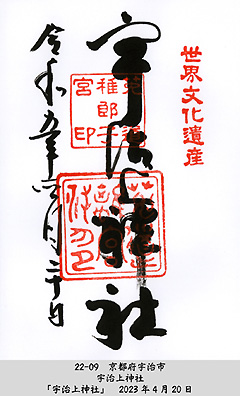 世界文化遺産
宇治上神社
菟道
稚郎子
宮印
令和五年四月二十日
22-09　京都府宇治市
宇治上神社
「宇治上神社」　2023年4月20日